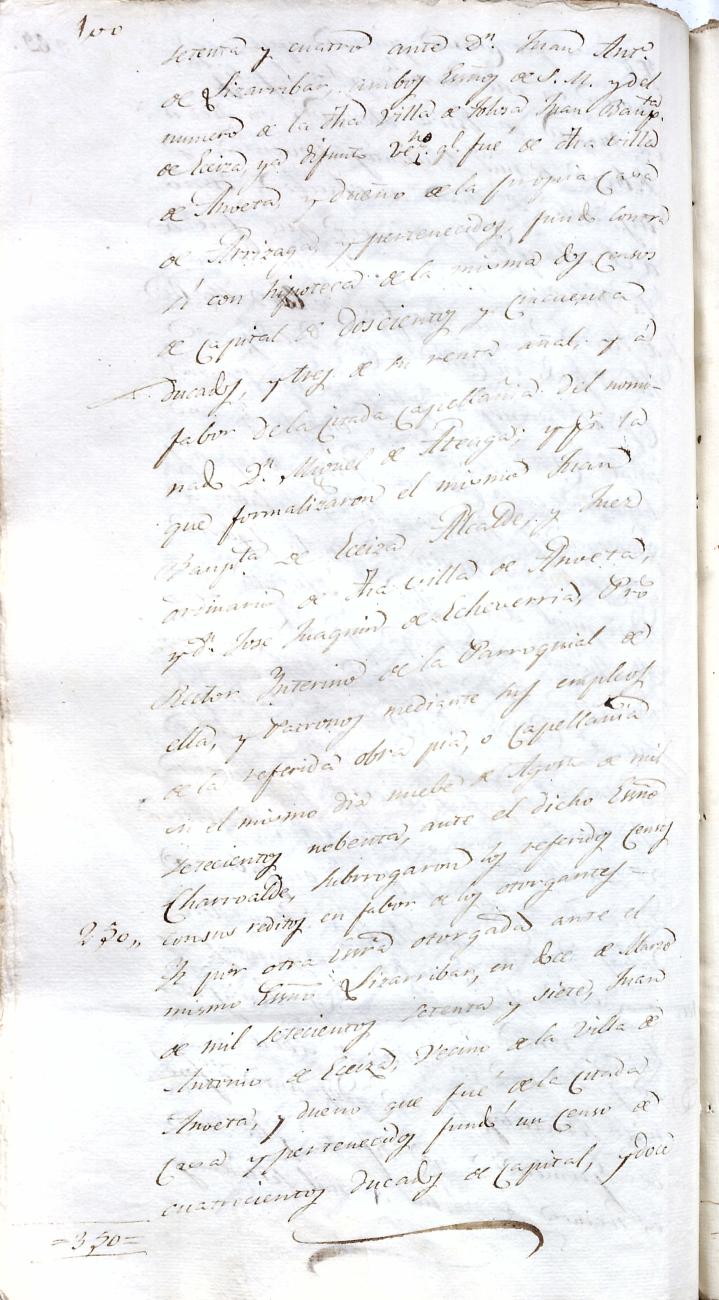 100
setenta y cuatro ante Dn. Juan Anto.
de Lizarribar, ambos Essnos de S. M. y del
numero de la dha Villa de Tolosa Juan Baupta.
de Eceiza, ya difunto vezno. ql. fue de dha villa
de Anoeta y dueño de la propia Casa
de Arrizaga, y pertenecidos, fundó contra
sí con hipoteca de la misma dos Censos
de Capital de doscientos y cincuenta
ducados, y tres de su renta añal, y á
fabor de la citada Capellania del nomi-
nado Dn. Miguel de Atenga; y pr. la
que formalizaron el mismo Juan
Baupta de Eceiza Alcalde, y Juez
ordinario de dha villa de Anoeta,
y dn. José Juaquin de Echeverria, Pro
Rector Interino de la Parroquial de
ella, y Patronos mediante sus empleos
de la referida obra pia, o Capellania
en el mismo dia nuebe de Agosto de mil
setecientos nobenta, ante el dicho Essno
Charroalde, subrrogaron los referidos Censos
250,, con sus reditos en fabor de los otorgantes =
Yt por otra Essra otorgada ante el
mismo Essno Lizarribar, en doce de Marzo
de mil setecientos setenta y siete, Juan
Antonio de Eceiza, Vecino de la Villa de
Anoeta, y dueño que fué de la Citada
Casa y pertenecidos fundó un Censo de
cuatrocientos Ducados de Capital, y doce
=350=